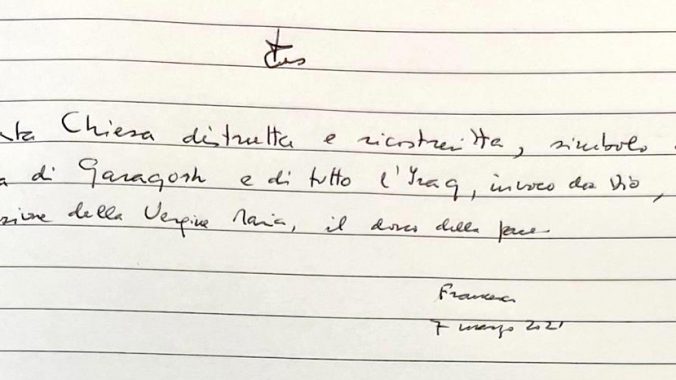 Chiesa distrutta e ricostruita, simbolo
di Qaraqosh e di tutto l'Iraq, invoco da Dio,
della Vergine Maria, il dono della pace
7 marzo 2021